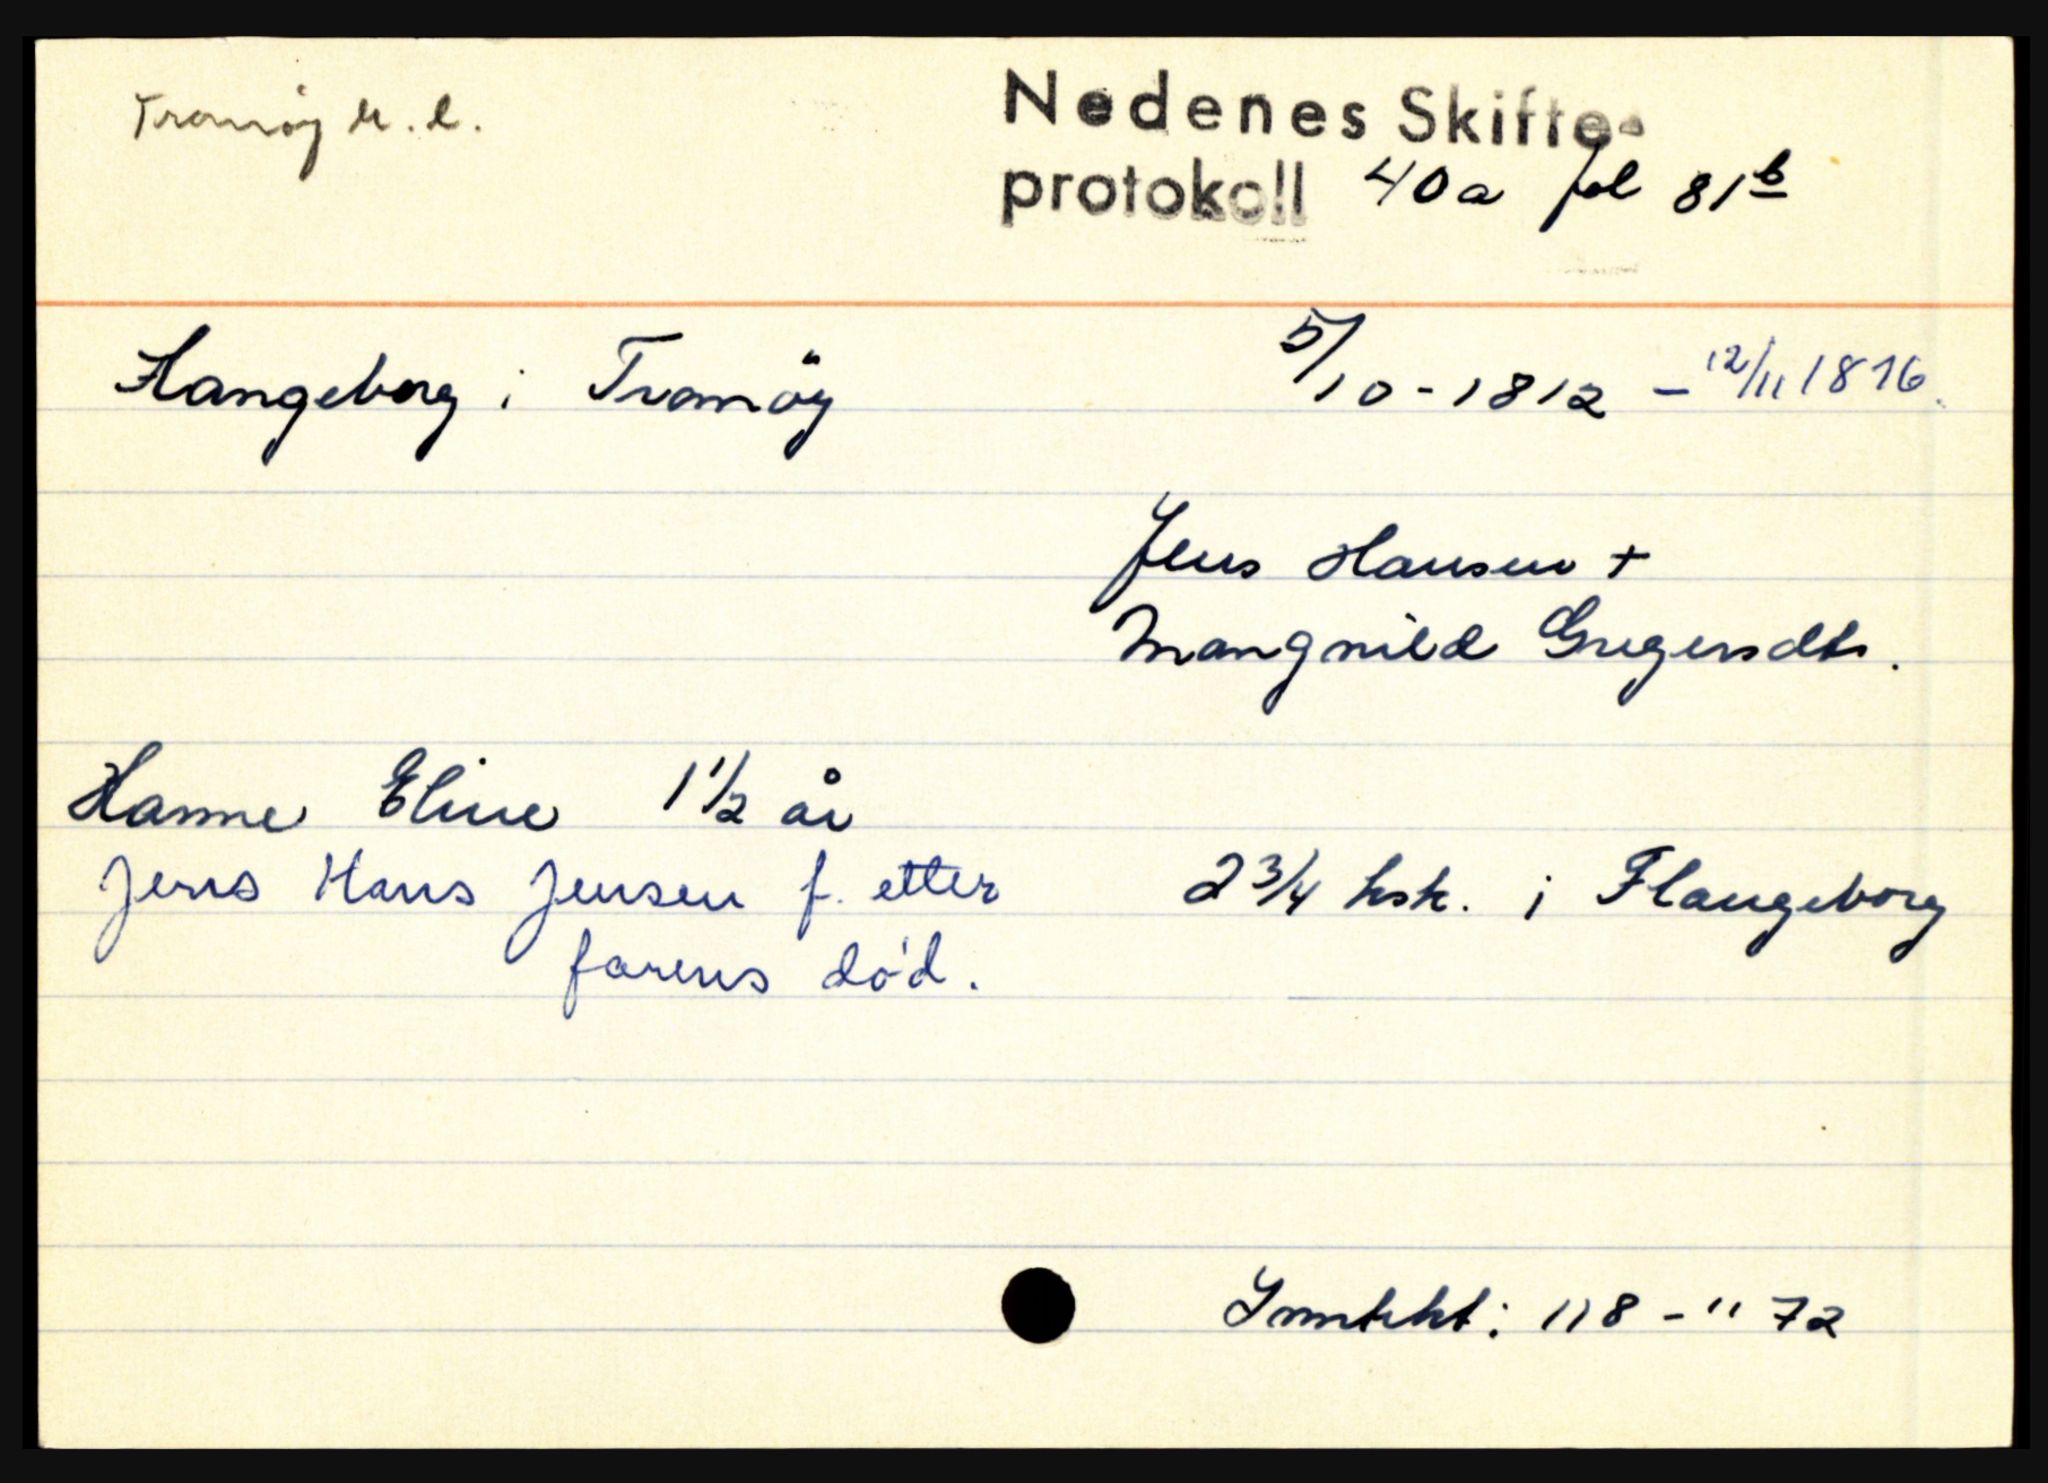 Tromøy M. l.
Nedenes Skifte-
protokoll 40a fol 81b
Hangeborg i Tromöy 5/10-1812 - 12/11 1816.
Jens Hansen +
Mangnild Gregersdtr.
Hanne Eline 1 1/2 år
Jens Hans Jensen f. etter
farens død.
2 3/4 hsk. i Flangeborg
Inntekt: 118-"72